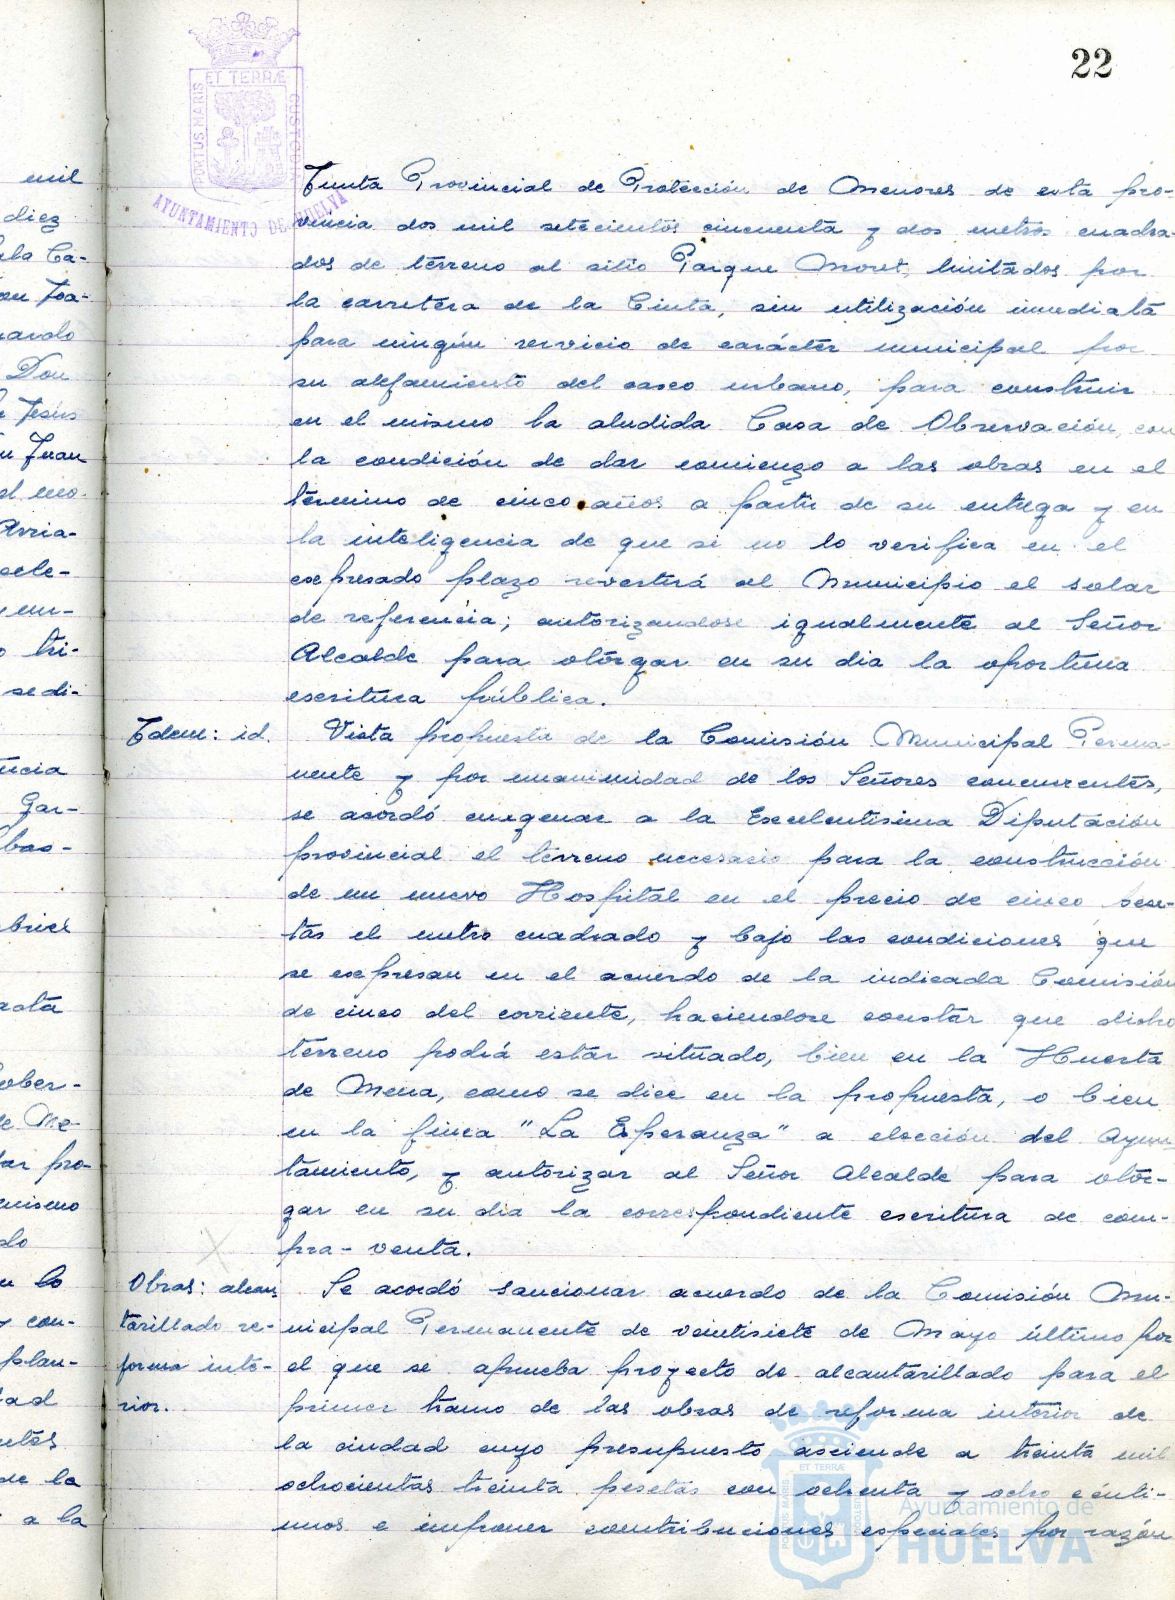 22
ET TERRÆ
PORTUS MARIS
CUSTODIA
AYUNTAMIENTO DE HUELVA
mil
diez
Don
Jesús
Juan
Junta Provincial de Protección de Menores de esta pro-
vincia dos mil setecientos cincuenta y dos metros cuadra-
dos de terreno al sitio Parque Moret, limitados por
la carretera de la Cinta, sin utilización inmediata
para ningún servicio de carácter municipal por
su alejamiento del casco urbano, para construir
en el mismo la aludida Casa de Observación, con
la condición de dar comienzo a las obras en el
término de cinco años a partir de su entrega y en
la inteligencia de que si no lo verifica en el
expresado plazo revertirá al Municipio el solar
de referencia; autorizandose igualmente al Señor
Alcalde para otorgar en su dia la oportuna
escritura pública.
Idem: id. Vista propuesta de la Comisión Municipal Perma-
nente y por unanimidad de los Señores concurrentes,
se acordó enagenar a la Excelentísima Diputación
provincial el terreno necesario para la construcción
de un nuevo Hospital en el precio de cinco pese-
tas el metro cuadrado y bajo las condiciones que
se expresan en el acuerdo de la indicada Comisión
de cinco del corriente, haciendose constar que dicho
terreno podrá estar situado, bien en la Huerta
de Mena, como se dice en la propuesta, o bien
en la finca "La Esperanza" a elección del Ayun-
tamiento, y autorizar al Señor Alcalde para otor-
gar en su dia la correspondiente escritura de com-
pra-venta.
Obras: alcan-
tarillado re-
forma inte-
rior.
Se acordó sancionar acuerdo de la Comisión Mu-
nicipal Permanente de veintisiete de Mayo último por
el que se aprueba proyecto de alcantarillado para el
primer tramo de las obras de reforma interior de
la ciudad cuyo presupuesto asciende a treinta mil
ochocientas treinta pesetas con ochenta y ocho cénti-
mos e imponer contribuciones especiales por razón
Ayuntamiento de
HUELVA